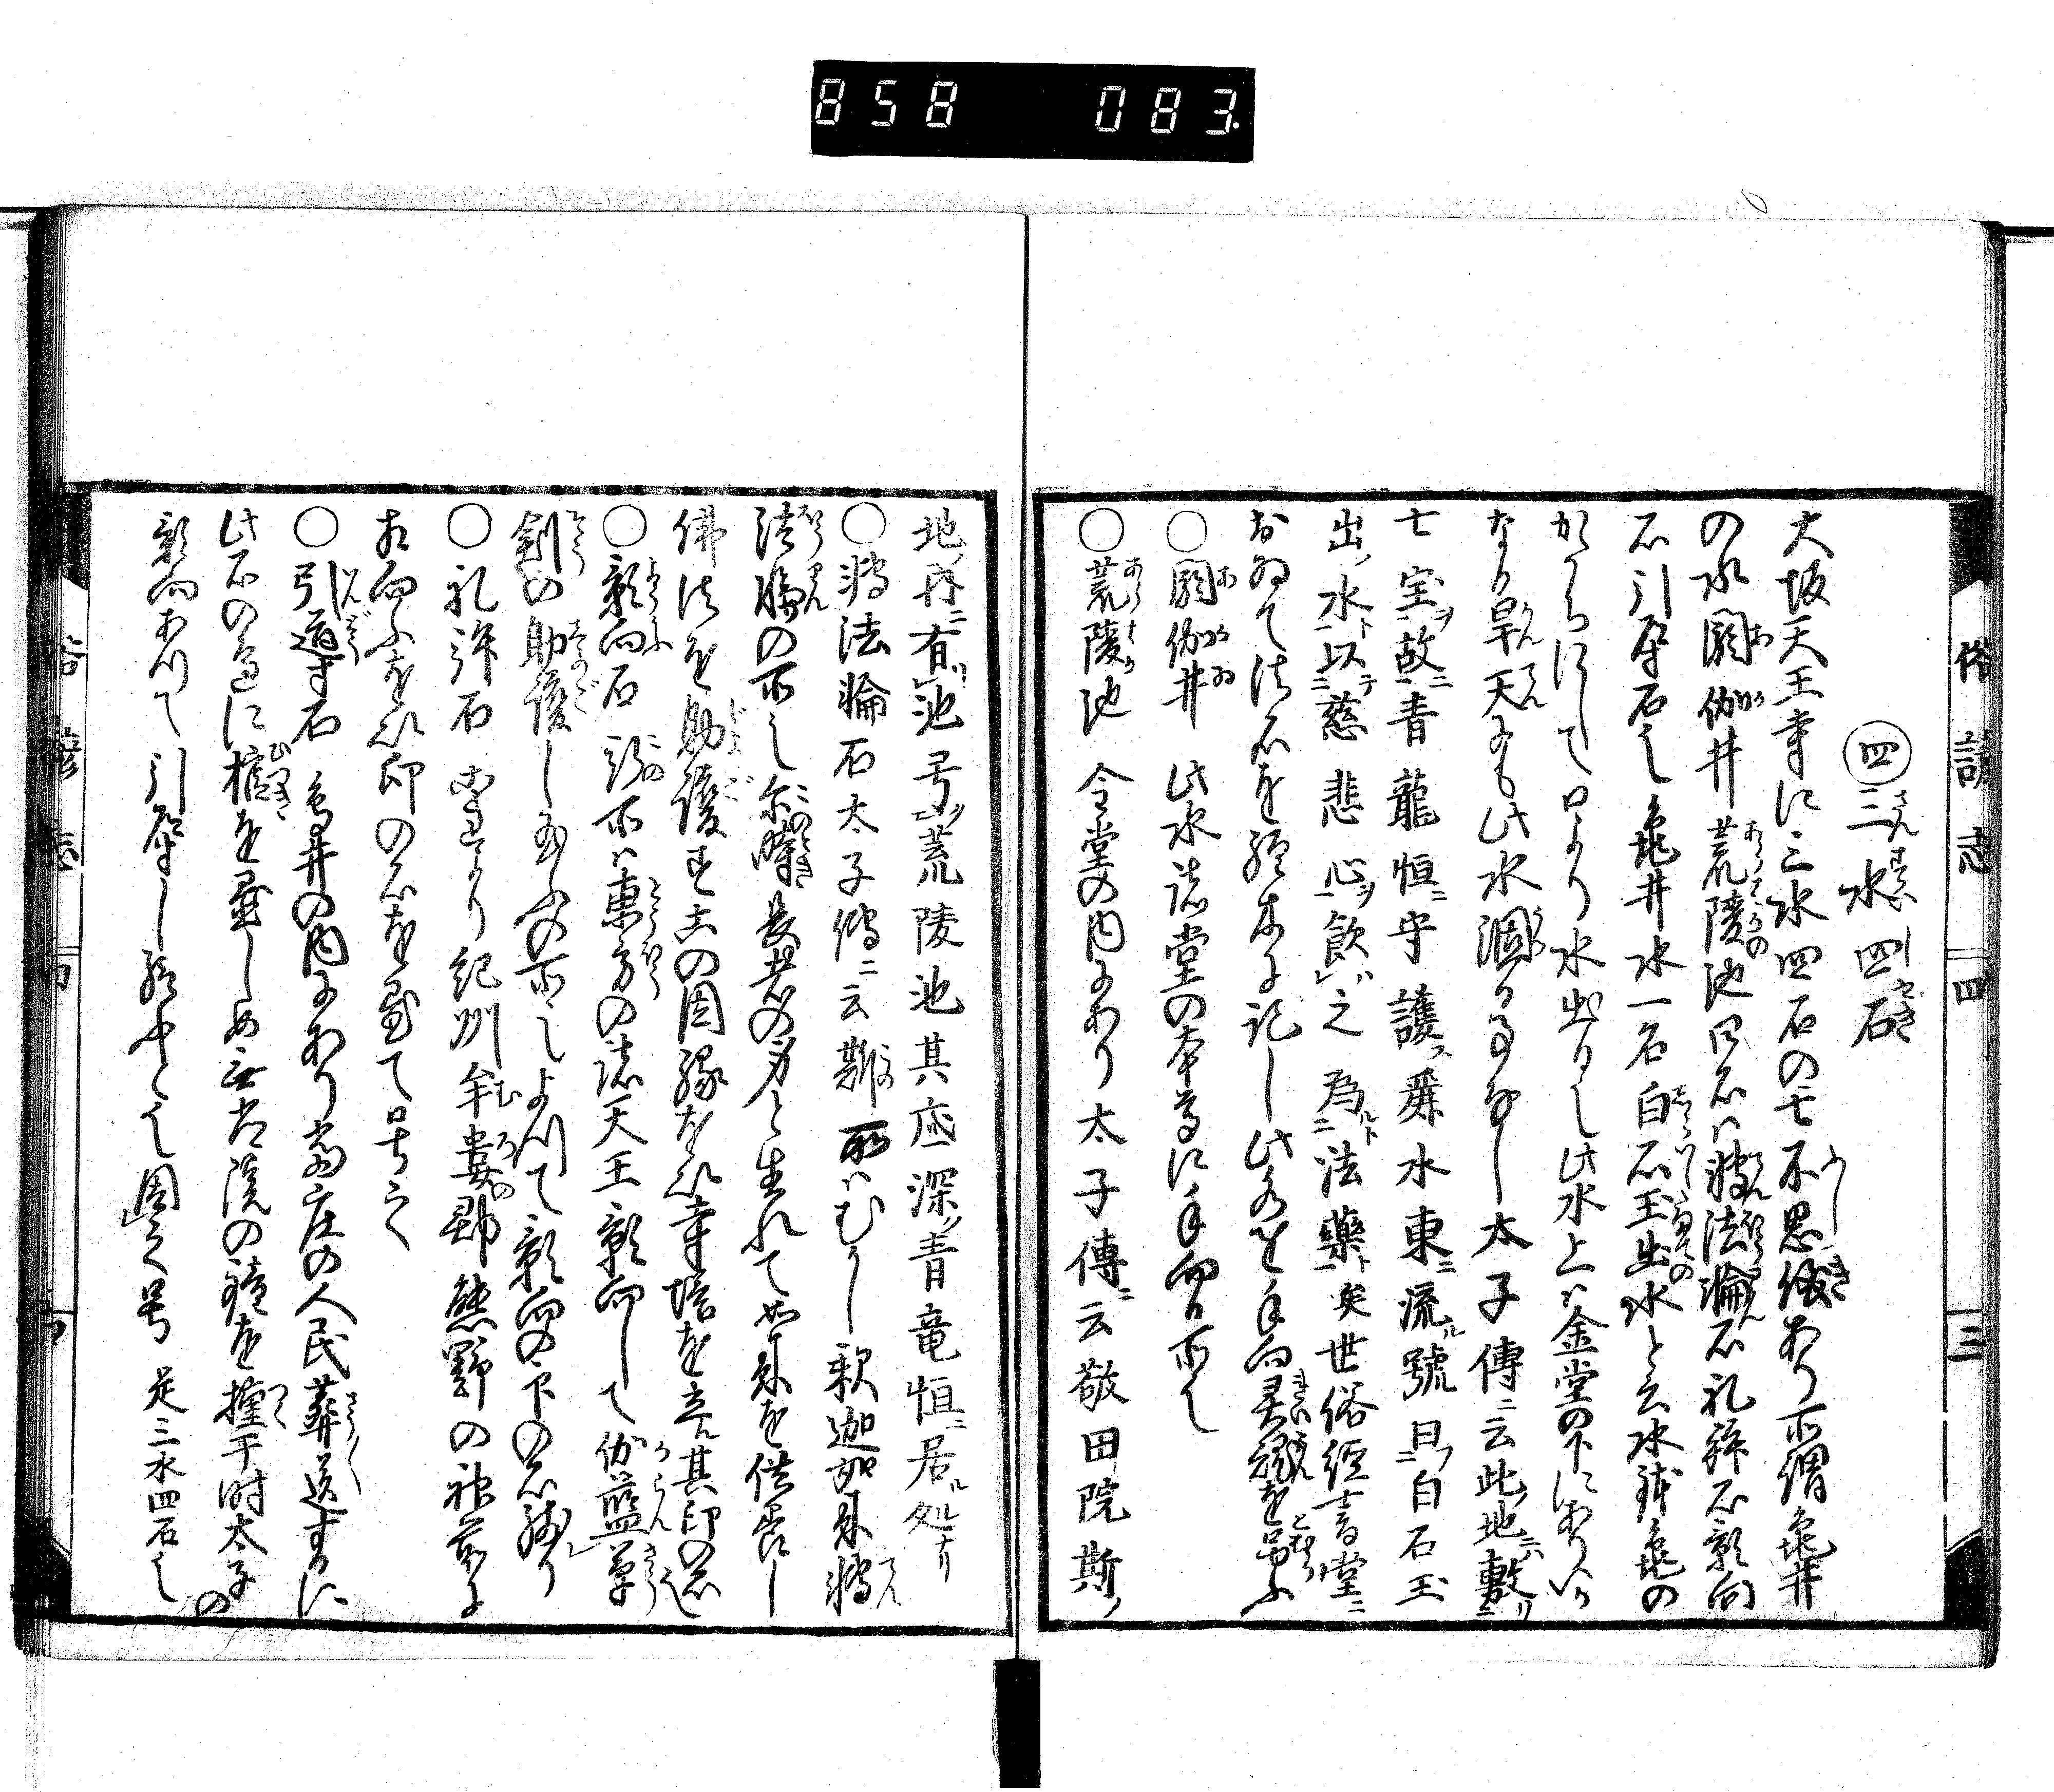 858 083.
俗説志 四 三
㊃三水四石
大坂天王寺に三水四石の七不思儀あり所謂亀井
の水閼伽井荒陵池四石ハ轉法輪石礼拝石影向
石引導石也亀井水一名白石玉出水と云水鉢亀の
かたちにして口より水出る也此水上ハ金堂の下にあり
なり旱天にも此水涸る事なし太子傳ニ云此地ニ敷リ
七宝ヲ故ニ青龍恒ニ守護ス麗水東ニ流ル號曰フ白石玉
出ノ水ト以テ慈悲心ヲ飲ハ之為ル法藥ト矣世俗経書堂ニ
おゐて法名を経木に記し此水を手向霊魂を吊ふ
○閼伽井 此水諸堂の本尊に手向る所也
○荒陵池 金堂の内にあり太子傳ニ云敬田院斯ノ
地ノ内ニ有池号ノ荒陵池其底深ノ青竜恒ニ居ル処ナリ
○轉法輪石太子傳ニ云斯所ハむかし釈迦如来轉
法輪の所也爾時長者の身と生れて如来を供養し
佛法を助護す其因縁を以寺塔を立ん其印の石也
○影向石 此所ハ東方の諸天王影向して伽藍草
創の助護し玉ふの所也よつて影向の下の石
○礼拝石 是より紀州牟婁郡熊野の神前に
相向ふを以印の石を居て号之
○引導石 鳥井の内にあり当庄の人民葬送するに
此石の邊に柩を置しめ無常院の鐘を撞于時太子の
影向あつて引導し給ふと也因て号 是三水四石也